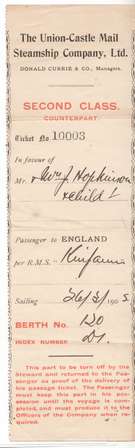 The Union-Castle Mail
Steamship Company, Ltd.
DONALD CURRIE & CO., Managers.
SECOND CLASS.
COUNTERPART
Ticket No. 10003
In favour of
Mr. & Mrs J. Hopkinson
& child
Passenger to ENGLAND
per R.M.S.
Sailing 26/3/1905.
BERTH No. 120
INDEX NUMBER
This part to be turn off by the
Steward and returned to the Pass-
enger as proof of the delivery of
his passage ticket. The Passenger
must keep this part in his poss-
ession until the voyage is com-
pleted, and must produce it to the
Officers of the Company when re-
quired.